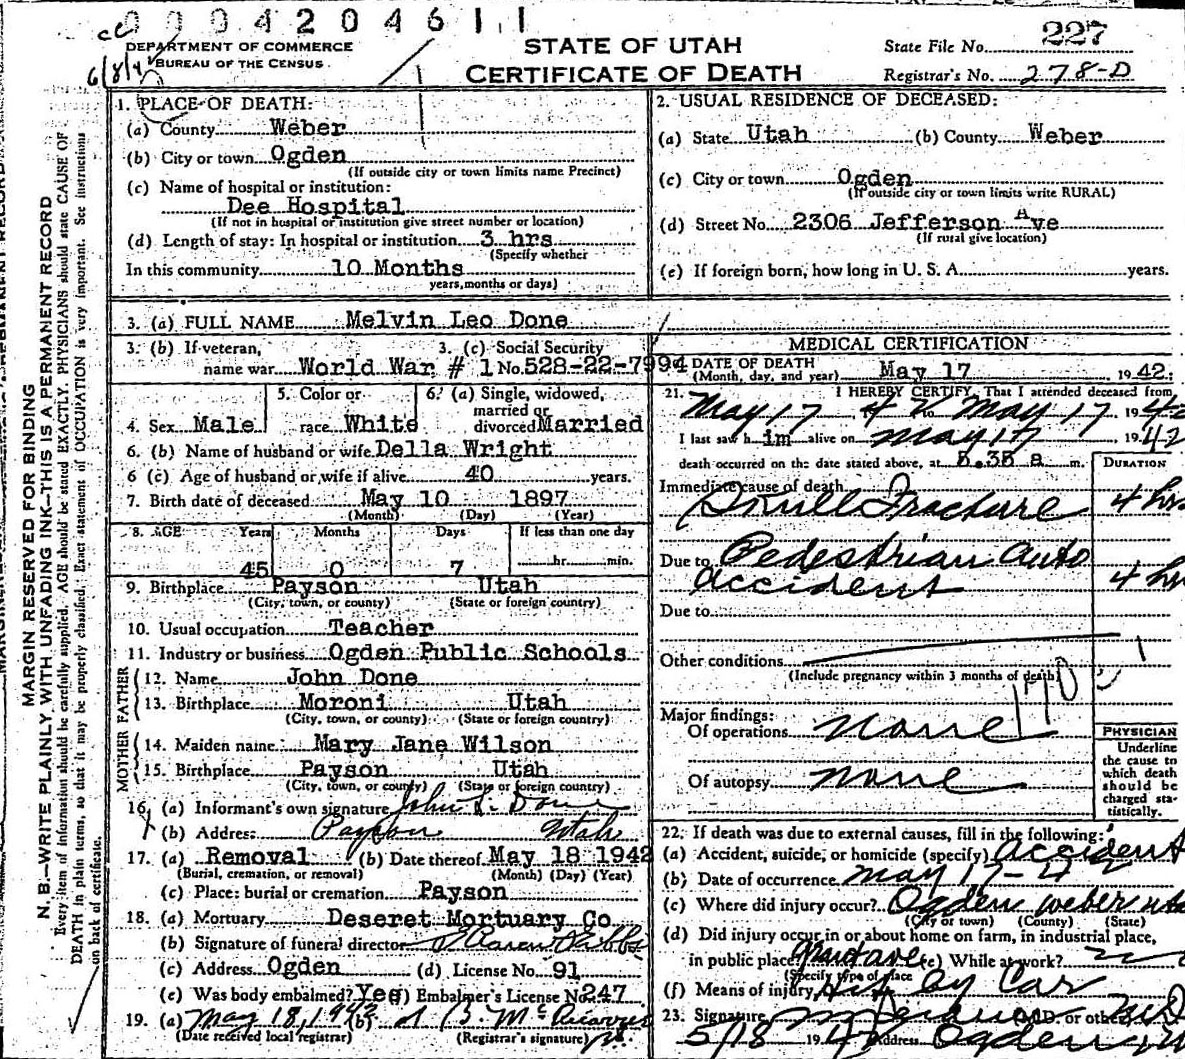 0004204611
cc
6/8/4
DEPARTMENT OF COMMERCE
BUREAU OF THE CENSUS
STATE OF UTAH
CERTIFICATE OF DEATH
State File No. 227
Registrar's No. 278-D
MARGIN RESERVED FOR BINDING
N. B.—WRITE PLAINLY WITH UNFADING INK—THIS IS A PERMANENT RECORD
Every item of information should be carefully supplied. AGE should be stated EXACTLY. PHYSICIANS should state CAUSE OF
DEATH in plain terms, so that it may be properly classified. Exact statement of OCCUPATION is very important. See instructions
on back of certificate.
1. PLACE OF DEATH:
(a) County Weber
(b) City or town Ogden
(If outside city or town limits name Precinct)
(c) Name of hospital or institution:
Dee Hospital
(If not in hospital or institution give street number or location)
(d) Length of stay: In hospital or institution 3 hrs
(Specify whether
In this community 10 Months
years, months or days)
2. USUAL RESIDENCE OF DECEASED:
(a) State Utah (b) County Weber
(c) City or town Ogden
(If outside city or town limits write RURAL)
(d) Street No. 2306 Jefferson Ave
(If rural give location)
(e) If foreign born, how long in U. S. A. years.
3. (a) FULL NAME Melvin Leo Done
3. (b) If veteran, 3. (c) Social Security
name war World War # 1 No. 528-22-7994
4. Sex Male
5. Color or
race White
6. (a) Single, widowed,
married or
divorced Married
6. (b) Name of husband or wife Della Wright
6 (c) Age of husband or wife if alive 40 years.
7. Birth date of deceased May 10 1897
(Month) (Day) (Year)
8. AGE Years Months Days If less than one day
45 0 7 hr. min.
9. Birthplace Payson Utah
(City, town, or county) (State or foreign country)
10. Usual occupation Teacher
11. Industry or business Ogden Public Schools
FATHER
12. Name John Done
13. Birthplace Moroni Utah
(City, town, or county) (State or foreign country)
MOTHER
14. Maiden name Mary Jane Wilson
15. Birthplace Payson Utah
(City, town, or county) (State or foreign country)
16. (a) Informant's own signature John Done
(b) Address Payson Utah
17. (a) Removal (b) Date thereof May 18 1942
(Burial, cremation, or removal) (Month) (Day) (Year)
(c) Place: burial or cremation Payson
18. (a) Mortuary Deseret Mortuary Co
(b) Signature of funeral director
(c) Address Ogden (d) License No. 91
(e) Was body embalmed? Yes (f) Embalmer's License No. 247
19. (a) May 18, 1942 (b)
(Date received local registrar) (Registrar's signature)
MEDICAL CERTIFICATION
DATE OF DEATH
(Month, day, and year) May 17 1942
21. I HEREBY CERTIFY, That I attended deceased from
May 17 42 to May 17, 1942
I last saw him alive on May 17, 1942
death occurred on the date stated above, at 5.35 a m.
DURATION
Immediate cause of death
Skull Fracture 4 hrs
Due to Pedestrian auto
accident 4 hrs
Due to
Other conditions
(Include pregnancy within 3 months of death)
170
Major findings:
Of operations none
Of autopsy none
PHYSICIAN
Underline
the cause to
which death
should be
charged sta-
tistically.
22. If death was due to external causes, fill in the following:
(a) Accident, suicide, or homicide (specify) accident
(b) Date of occurrence May 17-42
(c) Where did injury occur? Ogden Weber
(City or town) (County) (State)
(d) Did injury occur in or about home on farm, in industrial place,
in public place (e) While at work?
(Specify type of place
(f) Means of injury Hit by Car
23. Signature (M.D. or other) MD
5/18 1942 Address Ogden